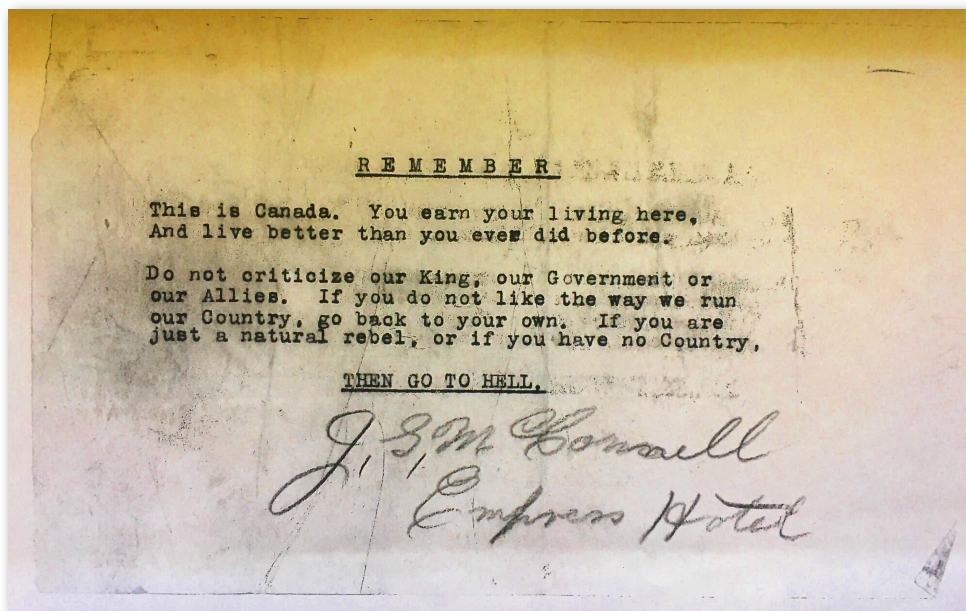 R E M E M B E R
This is Canada. You earn your living here,
And live better than you ever did before.
Do not criticize our King, our Government or
our Allies. If you do not like the way we run
our Country, go back to your own. If you are
just a natural rebel, or if you have no Country,
THEN GO TO HELL.
J. S. McConnell
Empress Hotel